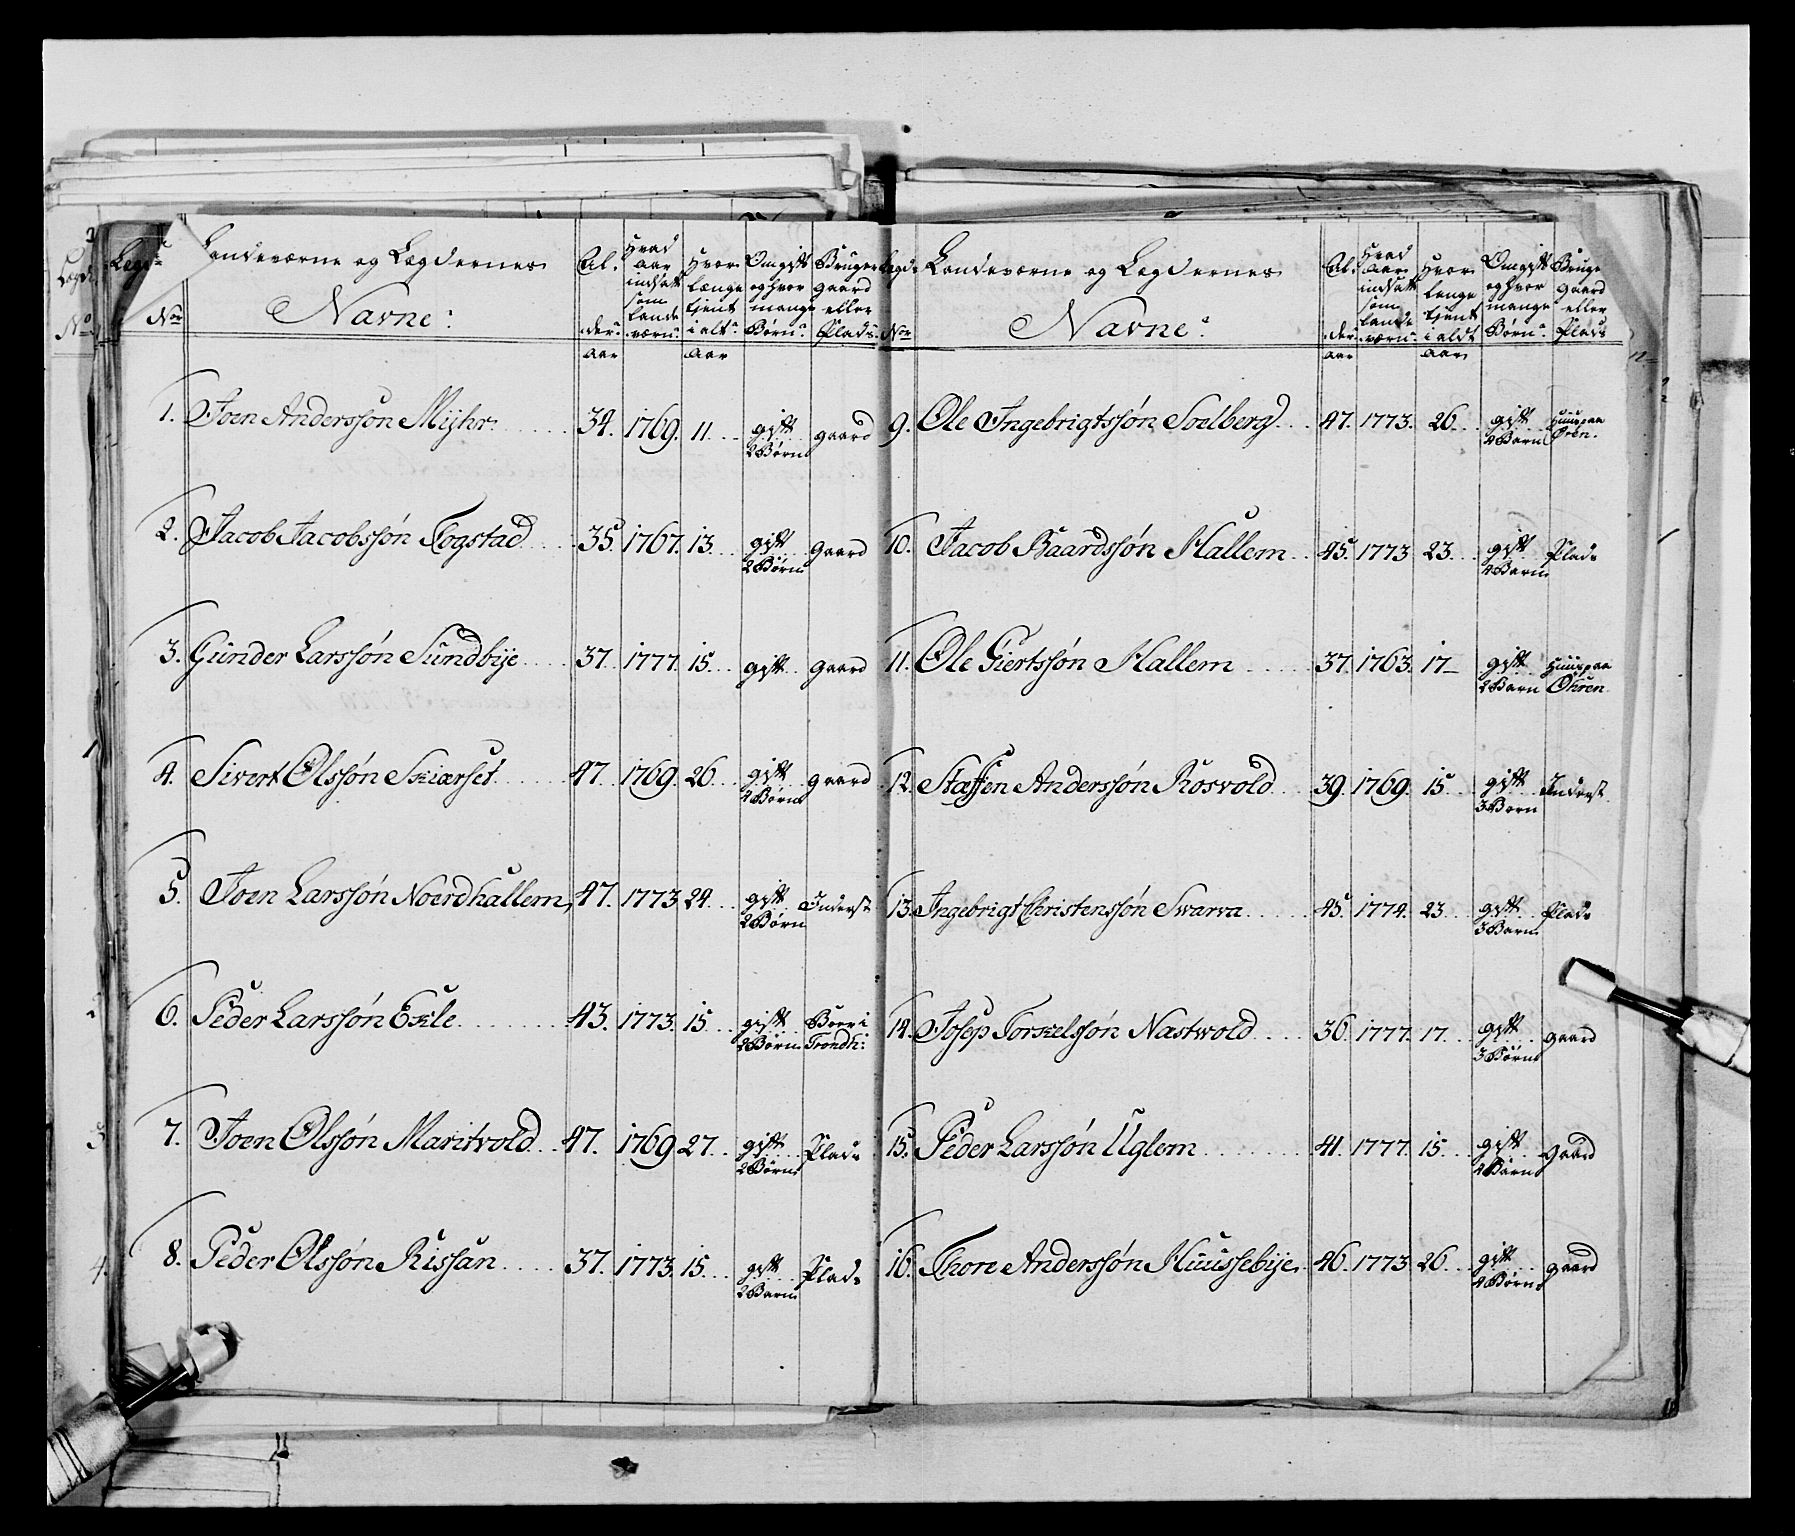 Legd:
Landeværne og Lægdernes
Navne:
Nor
Al-
der:
aar
Hvad
Aar
indsatt
som
Lande
værn:
Hvor
længe
tient
i alt:
Aar
Om gift
og hvor
mange
Børn:
Bruger
gaard
eller
Plads:
1. Joen Anderssøn Mijhr 34. 1769. 11. gift 2 Børn gaard
2. Jacob Jacobssøn Fogstad 35. 1767. 13. gift 2 Børn gaard
3. Gunder Larssøn Sundbije 37. 1777. 15. gift gaard
4. Sivert Olssøn Skiærset 47. 1769. 26. gift 4 Børn gaard
5. Joen Larssøn Noerdhallem, 47. 1773 24. gift 2 Børn Inderst
6. Peder Larssøn EKle 43. 1773. 15. gift 2 Børn Boer i Trondh:
7. Joen Olssøn Maritvold 47. 1769 27. gift 2 Børn Plads
8. Peder Olssøn Rissan 37. 1773. 15. gift 2 Barn Plads
Legd:
Nor
Landeværne og Lægdernes
Navne:
Al-
der:
aar
Hvad
Aar
indsatt
som
Lande
værn:
Hvor
lenge
tient
i aldt
aar
Om gift
og hvor
mange
Børn:
Bruge
gaard
eller
Plads
9. Ole Ingebrigtssøn Soelberg 47. 1773. 26. gift 4 Barn Huus paa Øren.
10. Jacob Baardssøn Hallem 45. 1773 23. gift 4 Barn Plads
11. Ole Giertssøn Hallem 37. 1763. 17 gift 2 Barn Huus paa Øhren
12. Staffen Anderssøn Rosvold 39. 1769. 15 gift 3 Børn Inderst
13. Ingebrigt Christenssøn Swarva 45. 1774. 23 gift 3 Barn Plads
14. Josep Torskelssøn Nastvold 36. 1777. 17. gift 3 Børn gaard
15. Peder Larssøn Uglem 41. 1777. 15. gift 2 Børn gaard
16. Thore Anderssøn Huussebije 46. 1773. 26. gift 4 Børn gaard